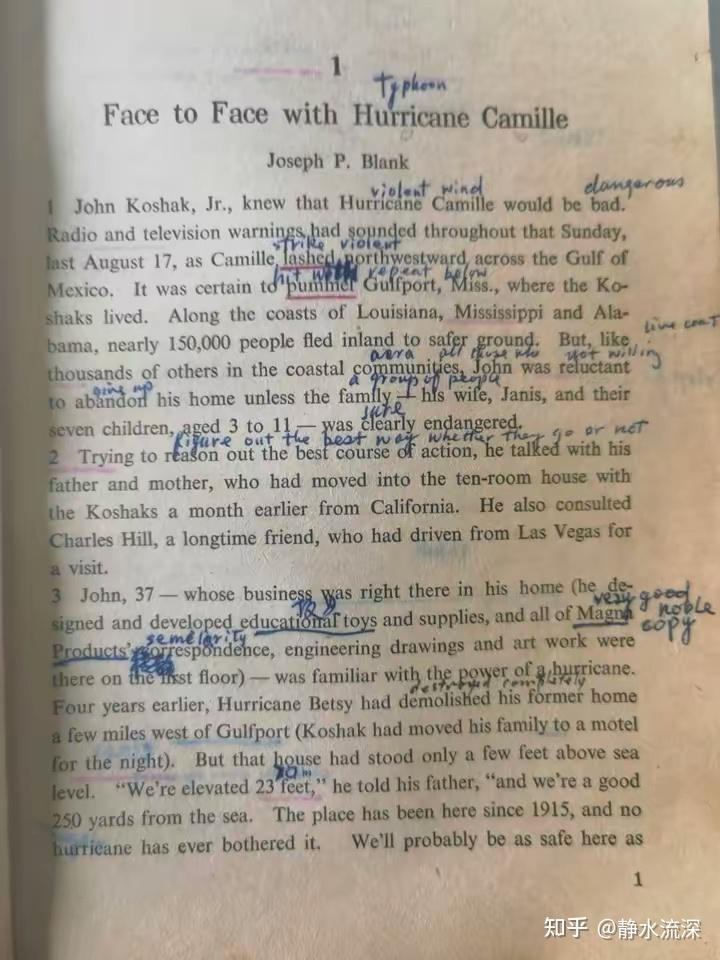 1
Typhoon
Face to Face with Hurricane Camille
Joseph P. Blank
violent wind dangerous
1 John Koshak, Jr., knew that Hurricane Camille would be bad.
Radio and television warnings had sounded throughout that Sunday,
strike violent
last August 17, as Camille lashed northwestward across the Gulf of
hit with repeat below
Mexico. It was certain to pummel Gulfport, Miss., where the Ko-
shaks lived. Along the coasts of Louisiana, Mississippi and Ala-
bama, nearly 150,000 people fled inland to safer ground. But, like
area all those who not willing
thousands of others in the coastal communities, John was reluctant
give up a group of people
to abandon his home unless the family — his wife, Janis, and their
sure
seven children, aged 3 to 11 — was clearly endangered.
figure out the best way whether they go or not
2 Trying to reason out the best course of action, he talked with his
father and mother, who had moved into the ten-room house with
the Koshaks a month earlier from California. He also consulted
Charles Hill, a longtime friend, who had driven from Las Vegas for
a visit.
3 John, 37 — whose business was right there in his home (he de-
very good
signed and developed educational toys and supplies, and all of Magna
noble
copy
semelarity
Products' correspondence, engineering drawings and art work were
there on the first floor) — was familiar with the power of a hurricane.
destroyed completely
Four years earlier, Hurricane Betsy had demolished his former home
a few miles west of Gulfport (Koshak had moved his family to a motel
for the night). But that house had stood only a few feet above sea
level. "We're elevated 23 feet," he told his father, "and we're a good
250 yards from the sea. The place has been here since 1915, and no
hurricane has ever bothered it. We'll probably be as safe here as
1
知乎 @静水流深